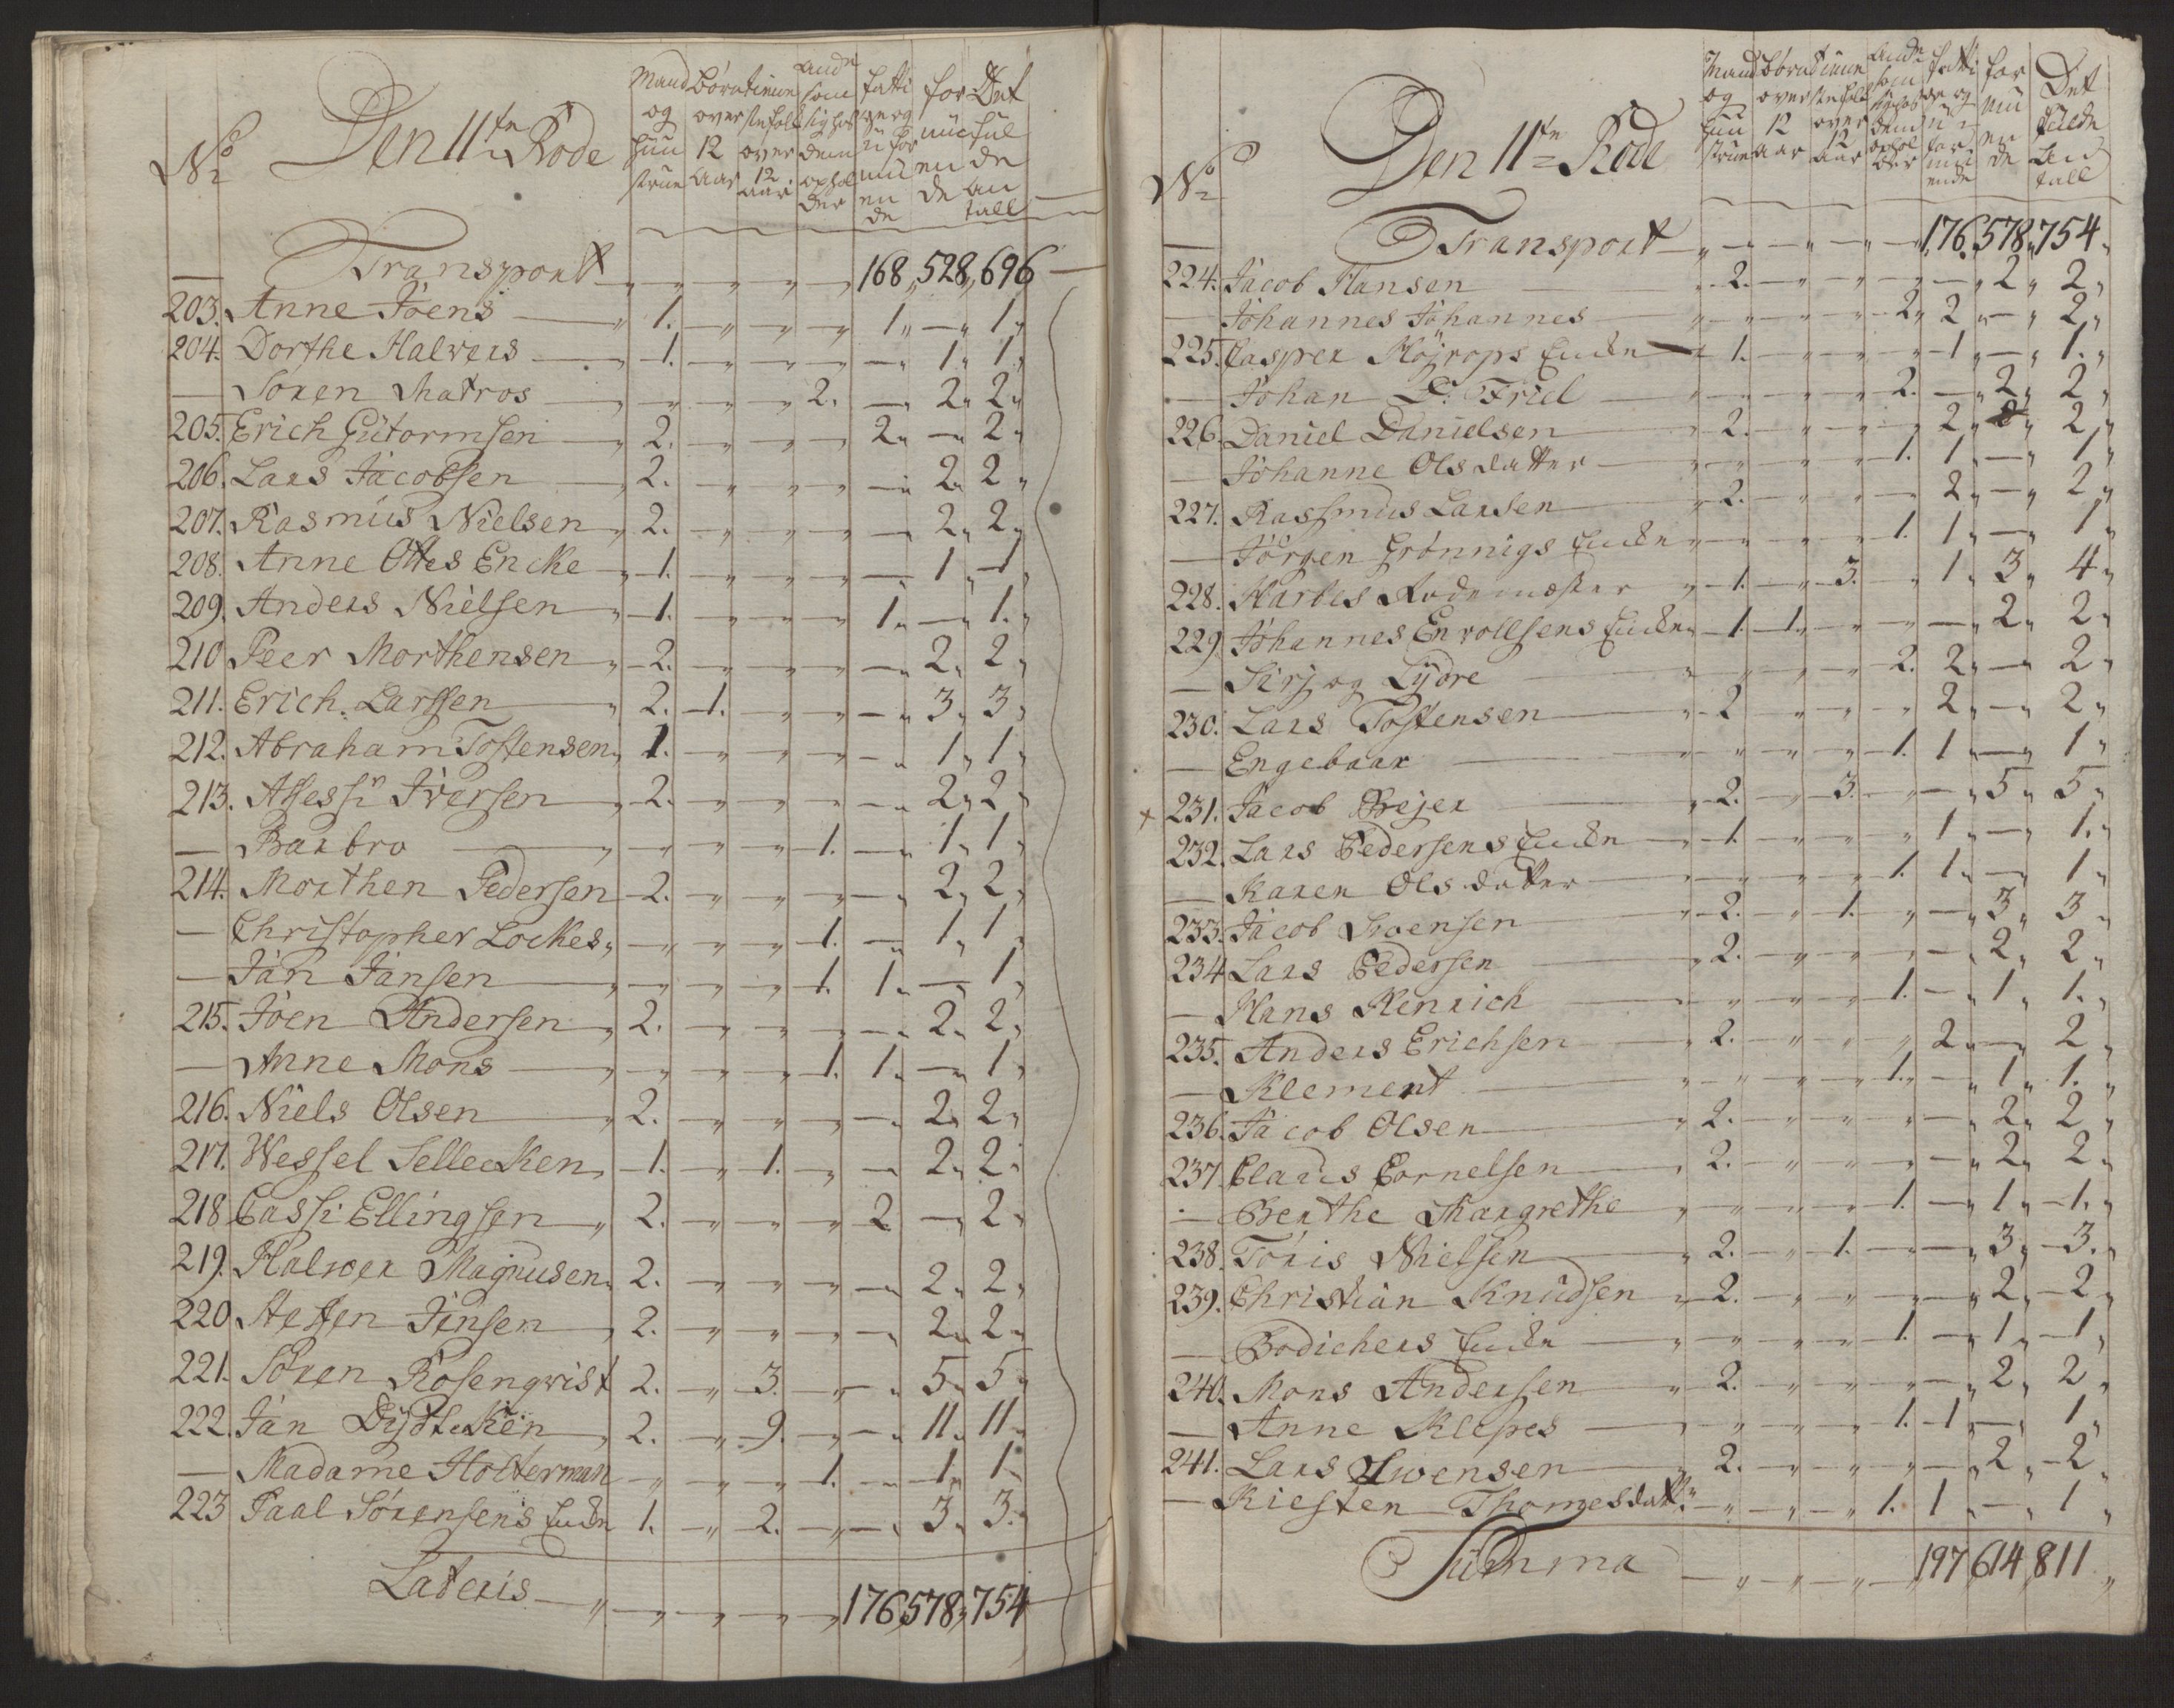 No Den 11te Rode
Mand og Hüu strue
børn over 12 Aar
tienne stefolk over 12 aar
Andre som sig hos dem ophol der
fatti ge og ü for mü en de
for mü en de
Det fül de an tall
— Transport „ „ „ „ 168„ 528„ 696
203. Anne Joens — 1. „ „ „ 1„ — 1„
204. Dorthe Halvers — 1. „ „ „ — 1„ 1„
— Soren Matros „ „ „ 2. — 2„ 2„
205. Erich Gütormsen 2. „ „ „ 2„ — 2„
206. Lars Jacobsen 2. „ „ „ — 2„ 2„
207. Rasmüs Nielsen 2. „ „ „ — 2„ 2„
208. Anne Ottes Encke 1. „ „ „ — 1„ 1„
209. Anders Nielsen 1. „ „ „ 1„ — 1„
210 Peer Morthensen 2. „ „ „ — 2„ 2„
211. Erich Larssen 2. 1. „ „ — 3„ 3„
212. Abraham Tostensen 1. „ „ „ — 1„ 1„
213. Assessr Iversen 2. „ „ „ — 2„ 2„
— Barbro „ „ „ 1. — 1„ 1„
214. Morthen Pedersen 2. „ „ „ — 2„ 2„
— Christopher Lockes „ „ „ 1. — 1„ 1„
— Jan Jansen „ „ „ 1. 1„ — 1„
215. Joen Andersen 2. „ „ „ — 2„ 2„
— Anne Mons „ „ „ 1. 1„ — 1„
216. Niels Olsen 2. „ „ „ — 2„ 2„
217. Wessel Sellecken 1. „ 1. „ — 2„ 2„
218 Cassi Ellingsen 2. „ „ „ 2 — 2„
219. Halvor Magnusen 2. „ „ „ — 2„ 2„
220 Steffen Jensen 2. „ „ „ — 2„ 2„
221. Sören Rosenqvist 2. „ 3. „ — 5„ 5„
222. Jan Dydteken 2. „ 9. „ — 11„ 11„
— Madame Holterman „ „ „ 1. — 1„ 1„
223 Paal Sörensens Encke 1. „ 2. „ — 3„ 3„
Lateris „ „ „ „ 176„ 578„ 754
No Den 11te Rode
Mand og Hüu strue
børn over 12 aar
tienne stefolk over 12 aar
Andre som sig hos dem ophol der
fatti ge og ü for mü ende
for mü en de
Det fulde An tall
— Transport „ „ „ „ 176„ 578„ 754„
224. Jacob Hansen 2. „ „ „ — 2„ 2„
— Johannes Johannes „ „ „ 2„ 2„ — 2„
225. Casper Höjrops Encke 1. „ „ „ 1„ — 1„
— Johan D. Friel „ „ „ 2. — 2„ 2„
226. Daniel Danielsen 2. „ „ „ 2„ „ 2„
— Johanne Olsdatter „ „ „ 1. 1„ — 1„
227. Rassmus Larsen 2. „ „ „ 2„ — 2„
— Jörgen Grönnigs Encke „ „ „ 1. 1„ — 1„
228. Harbes Rodemester 1. „ 3. „ 1„ 3„ 4„
229. Johannes Enrollsens Encke 1. 1. „ „ — 2„ 2„
— Sirj og Lydre „ „ „ 2. 2„ — 2„
230. Lars Tostensen 2 „ „ „ 2„ — 2„
— Engebaar „ „ „ 1. 1„ — 1„
+ 231. Jacob Brejer 2. „ 3. „ — 5„ 5„
232. Lars Pedersens Encke 1. „ „ „ 1„ — 1„
— Karen Olsdatter „ „ „ 1. 1„ — 1„
233. Jacob Svensen 2. „ 1. „ — 3„ 3„
234 Lars Pedersen 2. „ „ „ — 2„ 2„
— Hans Henrich „ „ „ 1. — 1„ 1„
235. Anders Erichsen 2. „ „ „ 2„ — 2„
— Klement „ „ „ 1. — 1„ 1„
236. Jacob Olsen 2. „ „ „ — 2„ 2„
237. Claus Cornelsen 2. „ „ „ — 2„ 2„
— Berthe Margrethe „ „ „ 1. — 1„ 1„
238. Töris Nielsen 2. „ 1. „ — 3„ 3„
239. Christian Knudsen 2. „ „ „ — 2„ 2„
— Bodichers Encke „ „ „ 1. — 1„ 1„
240. Mons Andersen 2. „ „ „ — 2„ 2„
— Anne Klepes „ „ „ 1. 1 — 1„
241. Lars Swensen 2. „ „ „ — 2„ 2„
— Kiesten Thomesdattr „ „ „ 1. 1 — 1„
Summa „ „ „ „ 197 614 811„